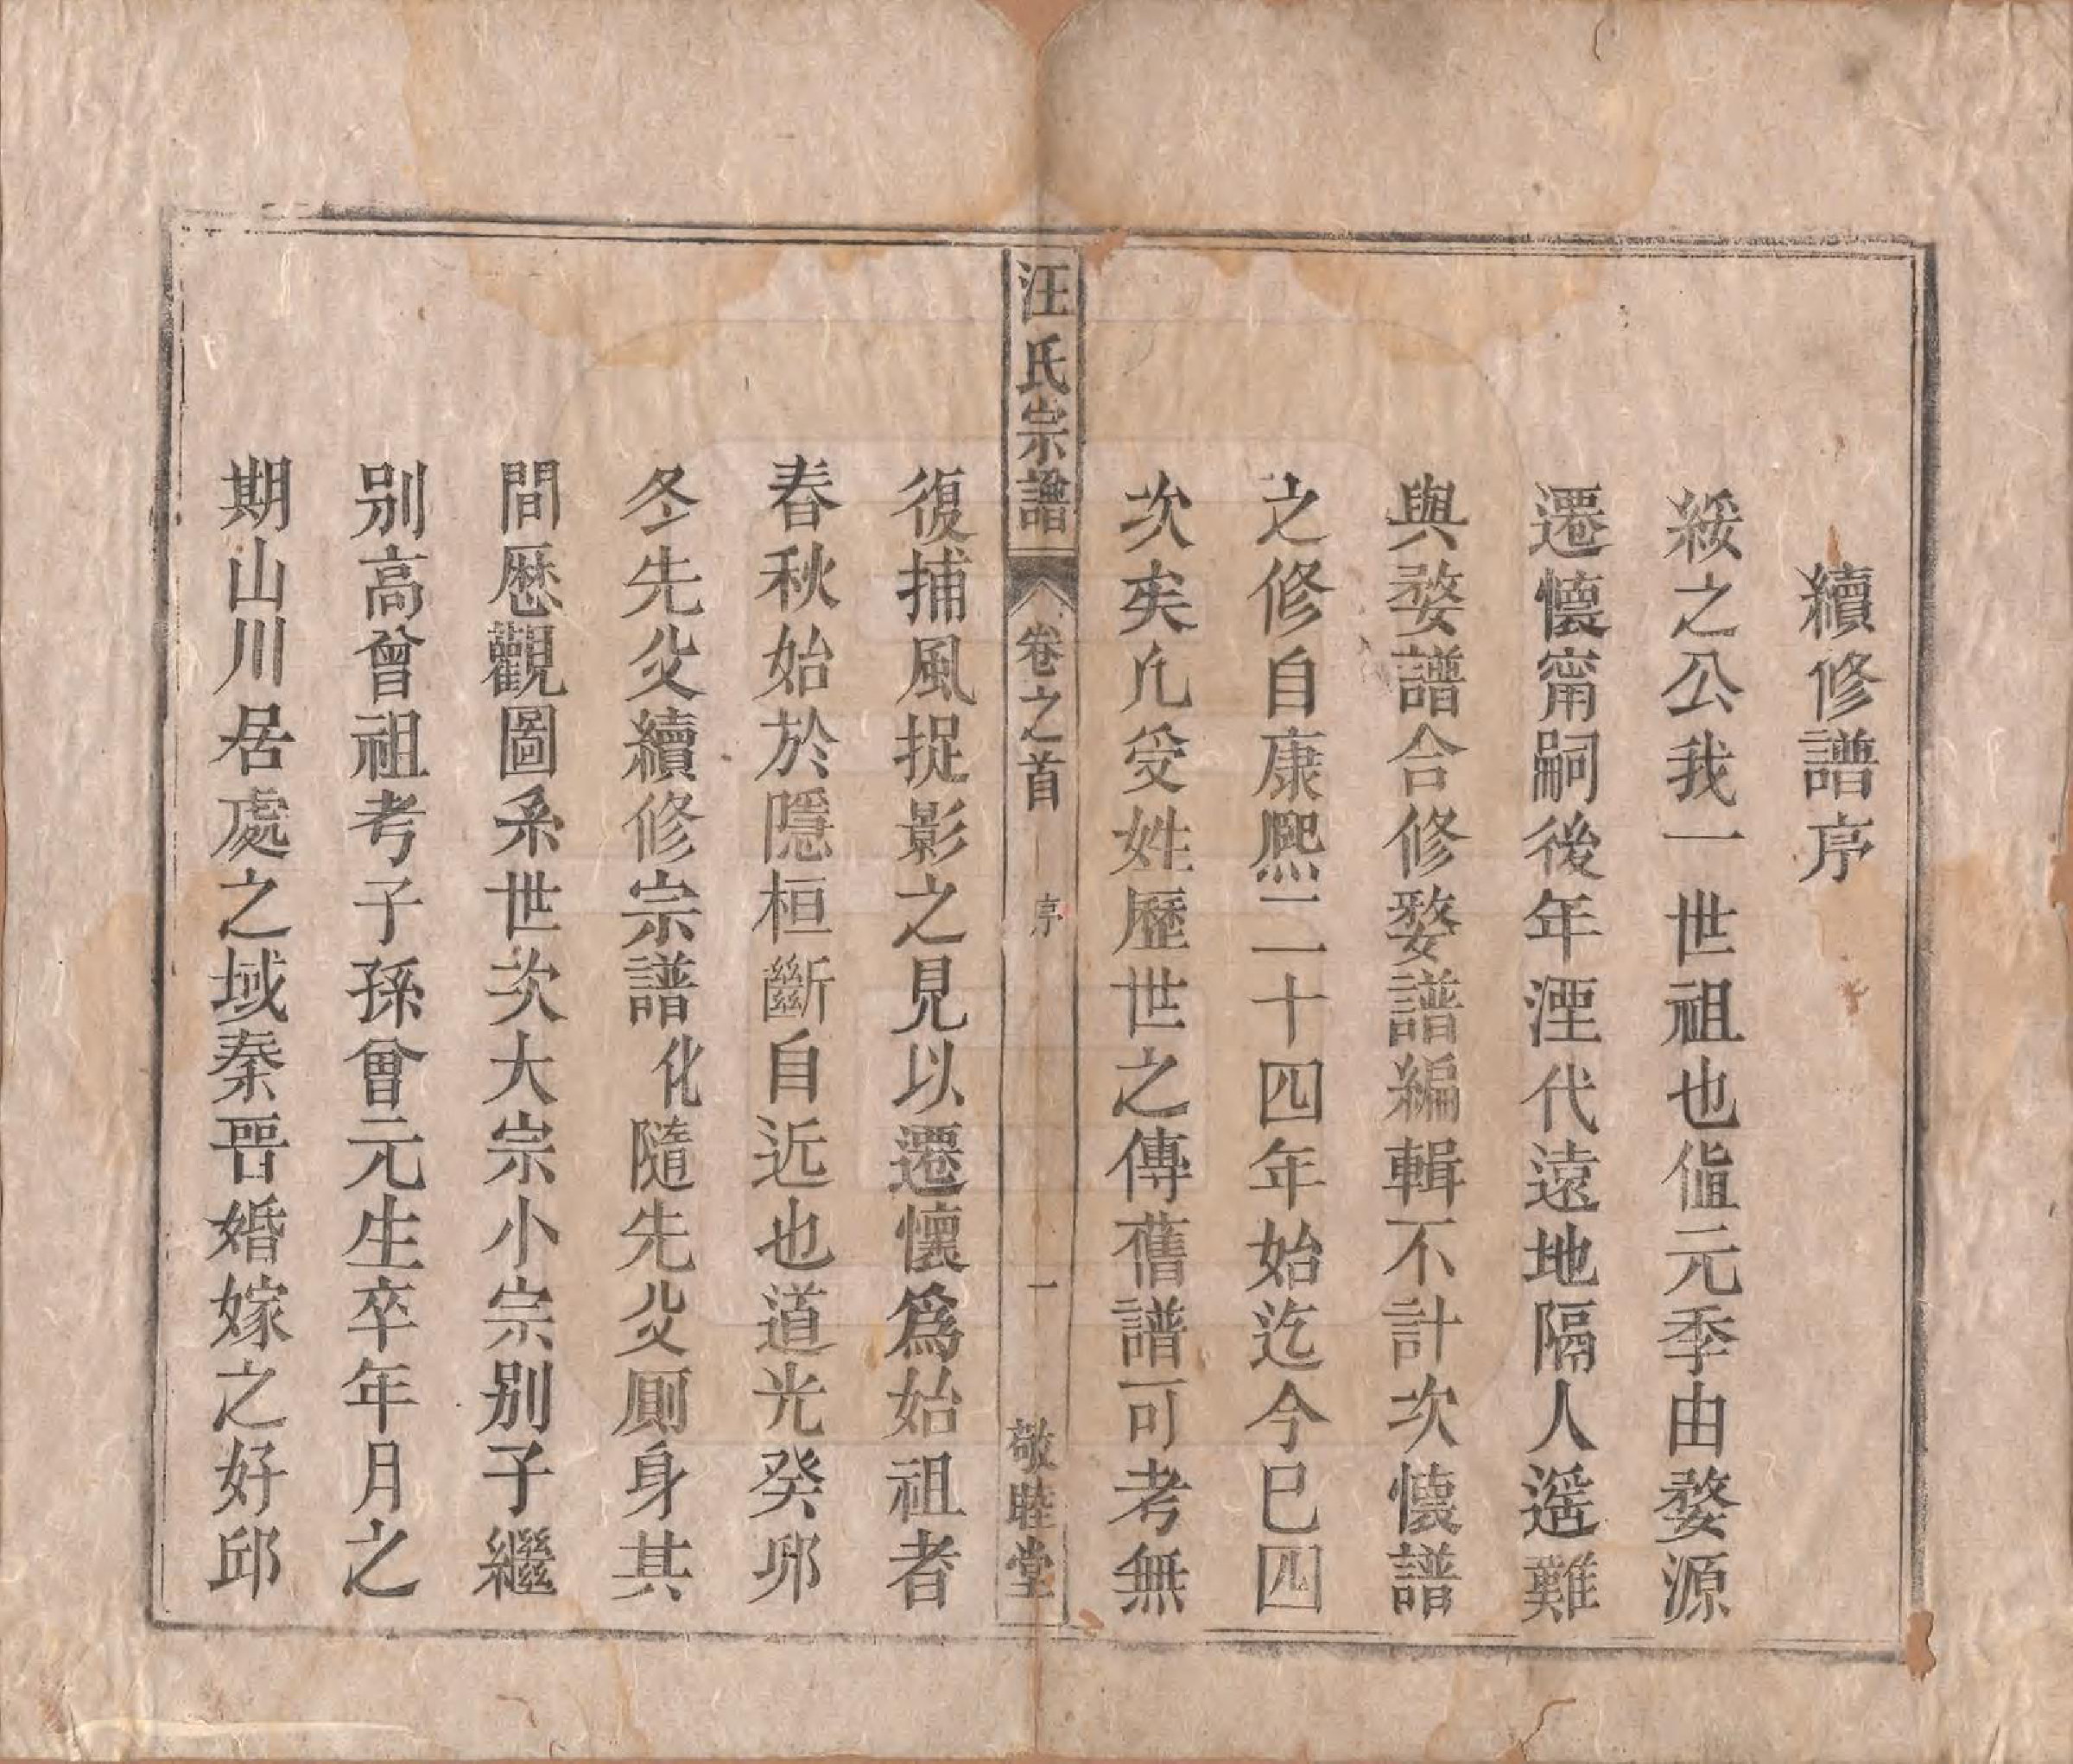 續修譜序
綏之公我一世祖也值元季由婺源
遷懷甯嗣後年湮代遠地隔人遥難
與婺譜合修婺譜編輯不計次懷譜
之修自康熈二十四年始迄今已四
次矣凡受姓歷世之傳舊譜可考無
汪氏宗譜 卷之首 序 一 敬睦堂
復捕風捉影之見以遷懷爲始祖者
春秋始於隱桓斷自近也道光癸夘
冬先父續修宗譜化隨先父厠身其
間厯觀圖系世次大宗小宗别子繼
别高曾祖考子孫曾元生卒年月之
期山川居處之域秦晋婚嫁之好邱